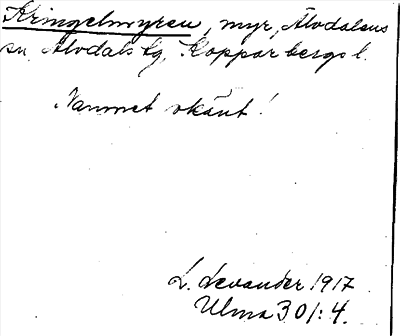 Kringelmyren, myr, Älvdalens
sn Älvdals tg, Kopparbergs l.
Namnet okänt!
L. Levander 1917
Ulma 301:4.